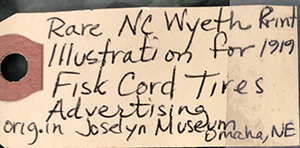 Rare NC Wyeth Print
Illustration for 1919
Fisk Cord Tires
Advertising
orig. in Joselyn Museum
Omaha, NE